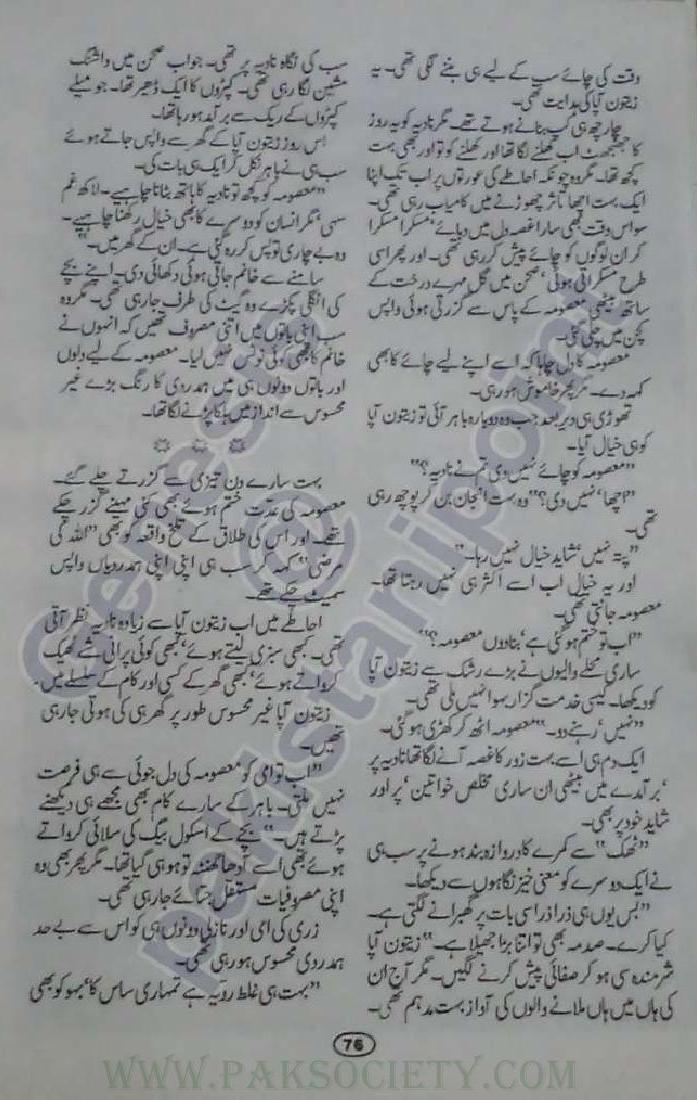 وقت کی چائے سب کے لیے ہی بننے لگی تھی۔ یہ
زیتون آپا کی ہدایت تھی۔
چار چھ ہی کپ بنانے ہوتے تھے۔ مگر نادیہ کو یہ روز
کا جھنجھٹ اب کھلنے لگا تھا اور کھلنے کو تو اور بھی بہت
کچھ تھا۔ مگر وہ چونکہ احاطے کی عورتوں پر اب تک اپنا
ایک بہت اچھا تاثر چھوڑنے میں کامیاب رہی تھی۔
سو اس وقت بھی سارا غصہ دل میں دبائے‘ مسکرا مسکرا
کر ان لوگوں کو چائے پیش کر رہی تھی۔ اور پھر اسی
طرح مسکراتی ہوئی‘ صحن میں گل مہر کے درخت کے
ساتھ بیٹھی معصومہ کے پاس سے گزرتی ہوئی واپس
کچن میں چلی گئی۔
معصومہ کا دل چاہا کہ اسے اپنے لیے چائے کا بھی
کہہ دے۔ مگر پھر خاموش ہو رہی۔
تھوڑی ہی دیر بعد جب وہ دوبارہ باہر آئی تو زیتون آپا
کو ہی خیال آیا۔
”معصومہ کو چائے نہیں دی تم نے نادیہ؟“
”اچھا‘ نہیں دی؟“ وہ بہت انجان بن کر پوچھ رہی
تھی۔
”پتہ نہیں‘ شاید خیال نہیں رہا۔“
اور یہ خیال اب اسے اکثر ہی نہیں رہتا تھا۔
معصومہ جانتی تھی۔
”اب تو ختم ہو گئی ہے‘ بنا دوں معصومہ؟“
ساری محلے والیوں نے بڑے رشک سے زیتون آپا
کو دیکھا۔ کیسی خدمت گزار بہو انہیں ملی تھی۔
”نہیں‘ رہنے دو۔“ معصومہ اٹھ کر کھڑی ہو گئی۔
ایک دم ہی اسے بہت زور کا غصہ آنے لگا تھا نادیہ پر
‘ برآمدے میں بیٹھی ان ساری مخلص خواتین‘ پر اور
شاید خود پر بھی۔
”ٹھک“ سے کمرے کا دروازہ بند ہونے پر سب ہی
نے ایک دوسرے کو معنی خیز نگاہوں سے دیکھا۔
”بس یوں ہی ذرا ذرا سی بات پر گھبرانے لگتی ہے۔
کیا کرے۔ صدمہ بھی تو اتنا بڑا جھیلا ہے۔“ زیتون آپا
شرمندہ سی ہو کر صفائی پیش کرنے لگیں۔ مگر آج ان
کی ہاں میں ہاں ملانے والوں کی آواز بہت مدہم تھی۔
سب کی نگاہ نادیہ پر تھی۔ جو اب صحن میں واشنگ
مشین لگا رہی تھی۔ کپڑوں کا ایک ڈھیر تھا۔ جو میلے
کپڑوں کے ریک سے برآمد ہو رہا تھا۔
اس روز زیتون آپا کے گھر سے واپس جاتے ہوئے
سب ہی نے باہر نکل کر ایک ہی بات کی۔
”معصومہ کو کچھ تو نادیہ کا ہاتھ بٹانا چاہیے۔ لاکھ غم
سہی‘ مگر انسان کو دوسرے کا بھی خیال رکھنا چاہیے۔
وہ بے چاری تو پس کر رہ گئی ہے۔ ان کے گھر میں۔“
سامنے سے خانم جاتی ہوئی دکھائی دی۔ اپنے بچے
کی انگلی پکڑے وہ گیٹ کی طرف جا رہی تھی۔ مگر وہ
سب اپنی باتوں میں اتنی مصروف تھیں کہ انہوں نے
خانم کا بھی کوئی نوٹس نہیں لیا۔ معصومہ کے لیے دلوں
اور باتوں دونوں ہی میں ہمدردی کا رنگ بڑے غیر
محسوس سے انداز میں ہلکا پڑنے لگا تھا۔
بہت سارے دن تیزی سے گزرتے چلے گئے۔
معصومہ کی عدت ختم ہوئے بھی کئی مہینے گزر چکے
تھے۔ اور اس کی طلاق کے تلخ واقعہ کو بھی ”اللہ کی
مرضی“ کہہ کر سب ہی اپنی اپنی ہمدردیاں واپس
سمیٹ چکے تھے۔
احاطے میں اب زیتون آپا سے زیادہ نادیہ نظر آتی
تھی۔ کبھی سبزی لیتے ہوئے‘ کبھی کوئی پرانی شے ٹھیک
کرواتے ہوئے‘ کبھی گھر کے کسی اور کام کے سلسلے میں۔
زیتون آپا غیر محسوس طور پر گھر ہی کی ہوتی جا رہی
تھیں۔
”اب تو امی کو معصومہ کی دل جوئی سے ہی فرصت
نہیں ملتی۔ باہر کے سارے کام بھی مجھے ہی دیکھنے
پڑتے ہیں۔“ بچے کے اسکول بیگ کی سلائی کرواتے
ہوئے بھی اسے آدھا گھنٹہ تو ہو ہی گیا تھا۔ مگر پھر بھی وہ
اپنی مصروفیات مستقل بتائے جا رہی تھی۔
زری کی امی اور نازلی دونوں ہی کو اس سے بے حد
ہمدردی محسوس ہو رہی تھی۔
”بہت ہی غلط رویہ ہے تمہاری ساس کا‘ بہو کو بھی
76
WWW.PAKSOCIETY.COM